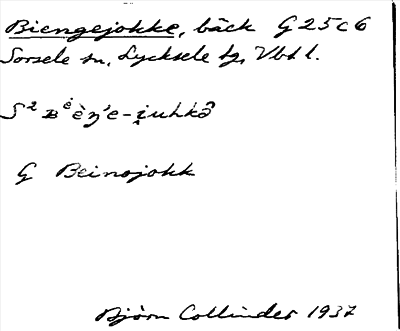 Biengejokke, bäck G25c6
Sorsele sn, Lycksele tg, Vbt l.
S²
G Beinojokk
Björn Collinder 1937